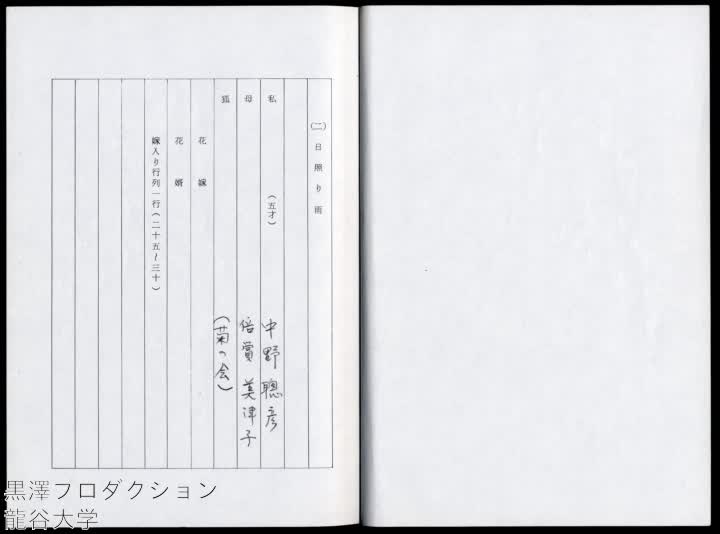 (二)日照り雨
私 (五才) 中野聰彦
母 倍賞美津子
狐 (菊の会)
花嫁
花婿
嫁入り行列一行(二十五~三十)
黒澤フロダクション
龍谷大学